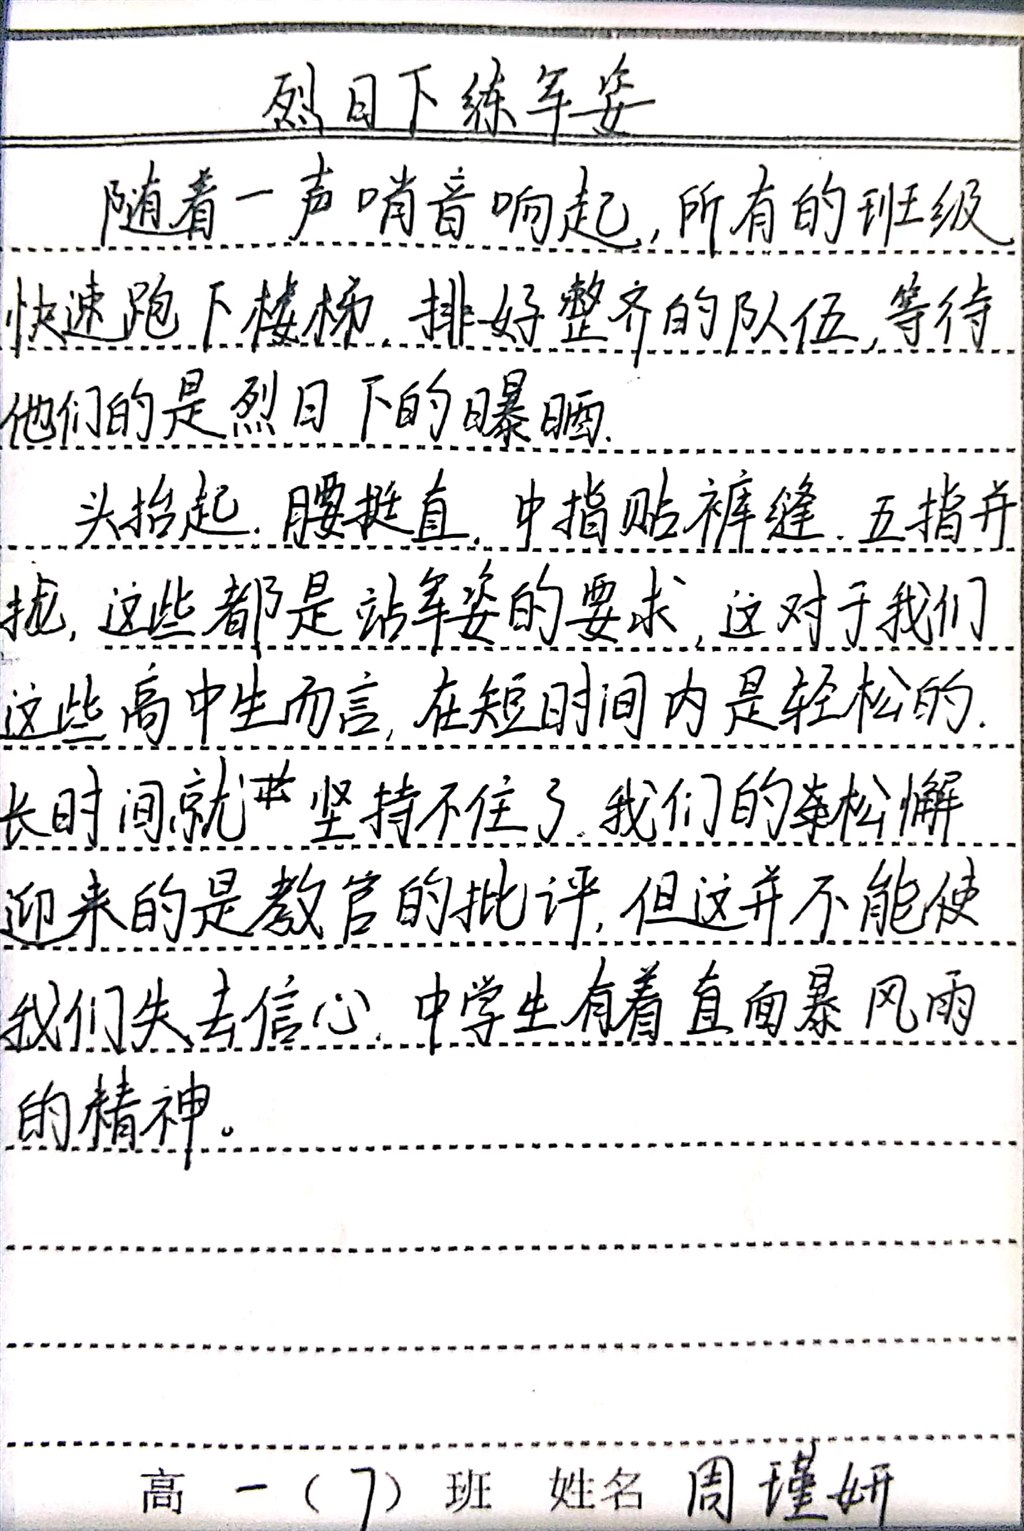 烈日下练军姿
随着一声哨音响起,所有的班级
快速跑下楼梯.排好整齐的队伍,等待
他们的是烈日下的曝晒.
头抬起.腰挺直.中指贴裤缝.五指并
拢,这些都是站军姿的要求,这对于我们
这些高中生而言,在短时间内是轻松的.
长时间就坚持不住了.我们的松懈
迎来的是教官的批评,但这并不能使
我们失去信心.中学生有着直面暴风雨
的精神。
高一(7)班 姓名 周瑾妍